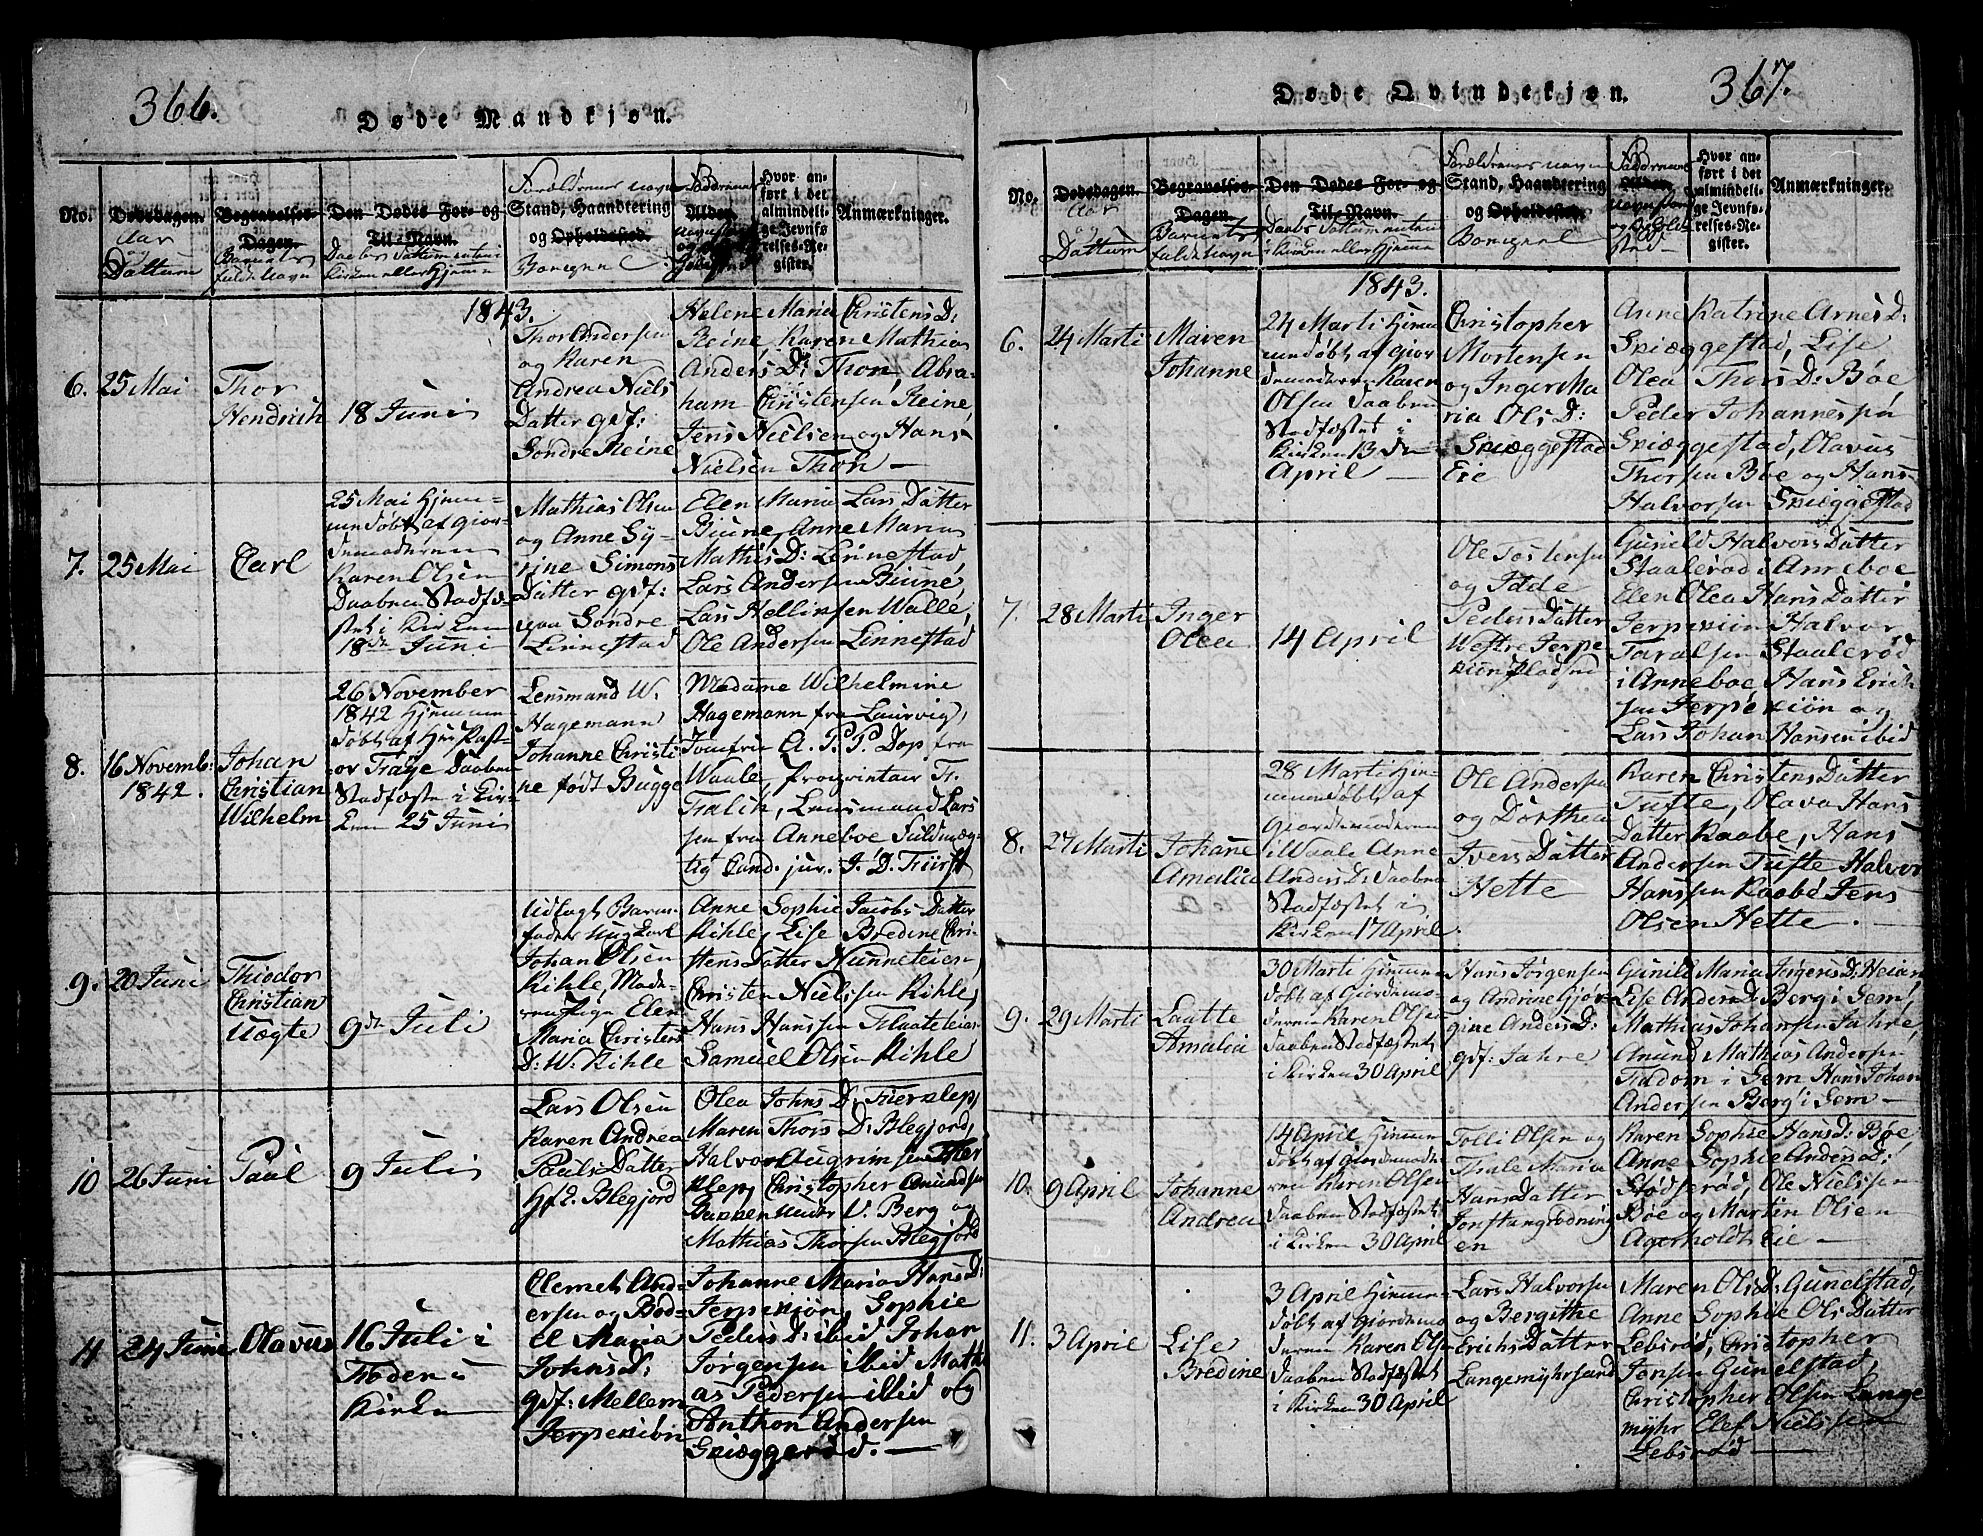 366.
Døde Mandkjøn.
No.
Dødsdagen.
Aar
og
Dattum
Begravelses-
Dagen.
Barnets
fulde Navn
Den Dødes For- og
Til-Navn.
Daabs Dattum enten i
Kirken eller Hjemme
Forældrenes Navn
Stand, Haandtering
og Opholdssted.
Boepæl
Faddernes
Alder.
Navn Stand
og Opholdssted
Hvor an-
ført i det
almindeli-
ge Jevnfø-
relses-Re-
gister.
Anmærkninger.
1843.
6. 25 Mai
Thor
Hendrich
18 Juni
Thor Andersen
og Karen
Andrea Niels
Datter gdf:
Søndre Reine
Helene Maria Christens D:
Reine, Karen Mathias
Anders D: Thon, Abra-
ham Christensen Reine,
Jens Nielsen og Hans
Nielsen Thon —
7. 25 Mai
Carl
25 Mai Hjem-
mendøbt af Gior-
demoderen
Karen Olsen
Daaben Stadfæ-
stet i Kirken
18de Juni
Mathias Olsen
og Anne Sy-
rine Simons
Datter gdf:
paa Søndre
Linnestad
Elen Maria Lars Datter
Biune, Anne Maria
Mathis D: Linnestad,
Lars Andersen Biune,
Lars Hellissen Walle,
Ole Andersen Linnestad
8. 16 Novemb:
1842.
Johan
Christian
Wilhelm
26 November
1842 Hjemme
døbt af Hr: Past-
or Fraye Daaben
Stadfæste i Kir-
ken 25 Juni
Lensmand W.
Hagemann
Johanne Christi
ne født Bugge
Madame Wilhelmine
Hagemann fra Laurvig,
Jomfru A. P. P. Dop fra
Waale, Fr.
Falich, Lensmand Lars
sen fra Anneboe Fuldmæg-
tig Cand. jur. J. D. Fürst
9. 20 Juni
Thiodor
Christian
Uægte
9de Juli
Udlagt Barne-
fader Ung Karl
Johan Olsen
Kihle, Mode-
ren Pige Elen
Maria Christens
D: W: Kihle
Anne Sophie Jacobs Datter
Kihle, Lise Bredine Chri-
stens Datter Nunneteien,
Christen Nielsen Kihle,
Hans Hanssen Flaateteien
Samuel Olsen Kihle
10 26 Juni
Paul
9 Juli
Lars Olsen
Karen Andrea
Pauls Datter
Gf: Blegjord
Olea Johns D: Fierklep,
Maren Thors D: Blegjord,
Halvor Augrimsen Fier
klep, Christopher Amundsen
V. Berg og
Mathias Thorsen Blegjord
11 24 Juni
Olavus
16 Juli i
Foden i
Kirken
Clemet And-
ersen og Bod-
el Maria
Johns D:
gdf: Mellem
Jerpekiøn
Johanne Maria Hans D:
Jerpekiøn, Sophie
Peders D: ibid Johan
Jørgensen ibid Mathi
as Pedersen ibid og
Anthon Andersen
Skiæggerød. —
367.
Døde Qvindekjøn.
No.
Dødsdagen.
Aar
og
Dattum
Begravelses-
Dagen.
Barnets
fulde Navn
Den Dødes For- og
Til-Navn.
Daabs Dattum enten
i Kirken eller Hjemme
Forældrenes Navn
Stand, Haandtering
og Opholdssted.
Boepæl
Faddernes
Alder.
Navn Stand
og Opholds-
sted
Hvor an-
ført i det
almindeli-
ge Jevnfø-
relses-Re-
gister.
Anmærkninger.
1843.
6. 24 Marti
Maren
Johanne
24 Marti Hjem
mendøbt af Gior
demoderen Karen
Olsen Daaben
Stadfæstet i
Kirken 13 den
April —
Christopher
Mortensen
og Inger Ma
ria Ols D:
Skiæggestad
Eie
Anne Katrine Arnes D:
Skiæggestad, Lise
Olea Thors D: Bøe
Peder Johannesen
Skiæggestad, Olavus
Thorsen Bøe og Hans
Halvorsen Skiæggestad
7. 28 Marti
Inger
Olea
14 April
Ole Tostensen
og Idde
Peders Datter
Westre Jerpe
kiøn Pladsen
Gunild Halvors Datter
Staalerød i Anneboe
Elen Olea Hans Datter
Jerpekiøn Halvor
Taralsen Staalerød
i Anneboe, Hans Erich
sen Jerpekiøn og
Lars Johan Hansen ibid
8. 27 Marti
Johanne
Amalia
28 Marti Hjem-
mendøbt af
Giordemoderen
i Waale Anne
Anders D: Daaben
Stadfæstet i
Kirken 17 April
Ole Andersen
og Dorthea
Ivers Datter
Hette
Karen Christens Datter
Tufte, Olava Hans
Datter Raabe, Hans
Andersen Tufte Halvor
Hanssen Raabe Jens
Olsen Hette
9. 29 Marti
Laatte
Amalia
30 Marti Hjemmen
døbt af Giordemo-
deren Karen Olsen
Daaben Stadfæstet
i Kirken 30 April
Hans Jørgensen
og Andrine Gjør-
gine Anders D:
gdf: Jahre
Gunild Maria Jørgens D: Heian
Lise Anders D: Berg i Sem,
Mathias Johansen Jahre,
Anund Mathias Andersen
Fuldom i Sem Hans Johan
Andersen Berg i Sem —
10. 9 April
Johanne
Andrea
14 April Hjemmen
døbt af Giordemode
ren Karen Olsen
Daaben Stadfæstet
i Kirken 30 April
Tolli Olsen og
Thale Maria
Hans Datter
Jonstangrødning
en
Karen Sophie Hans D: Bøe
Anne Sophie Anders D:
Stødserød, Ole Nielsen
Bøe og Martin Olsen
Agerholdt Eie —
11. 3 April
Lise
Bredine
3 April Hjemmen-
døbt af Giordemo
deren Karen Olsen
Daaben Stadfæstet
i Kirken 30 April
Lars Halvorsen
og Bergithe
Erichs Datter
Langemyhrsand
Maren Ols D: Gunelstad,
Anne Sophie Ols Datter
Lebsrød, Christopher
Jonsen Gunelstad,
Christopher Olsen Lange
myhr Elef Nielssen
Lebsrød —